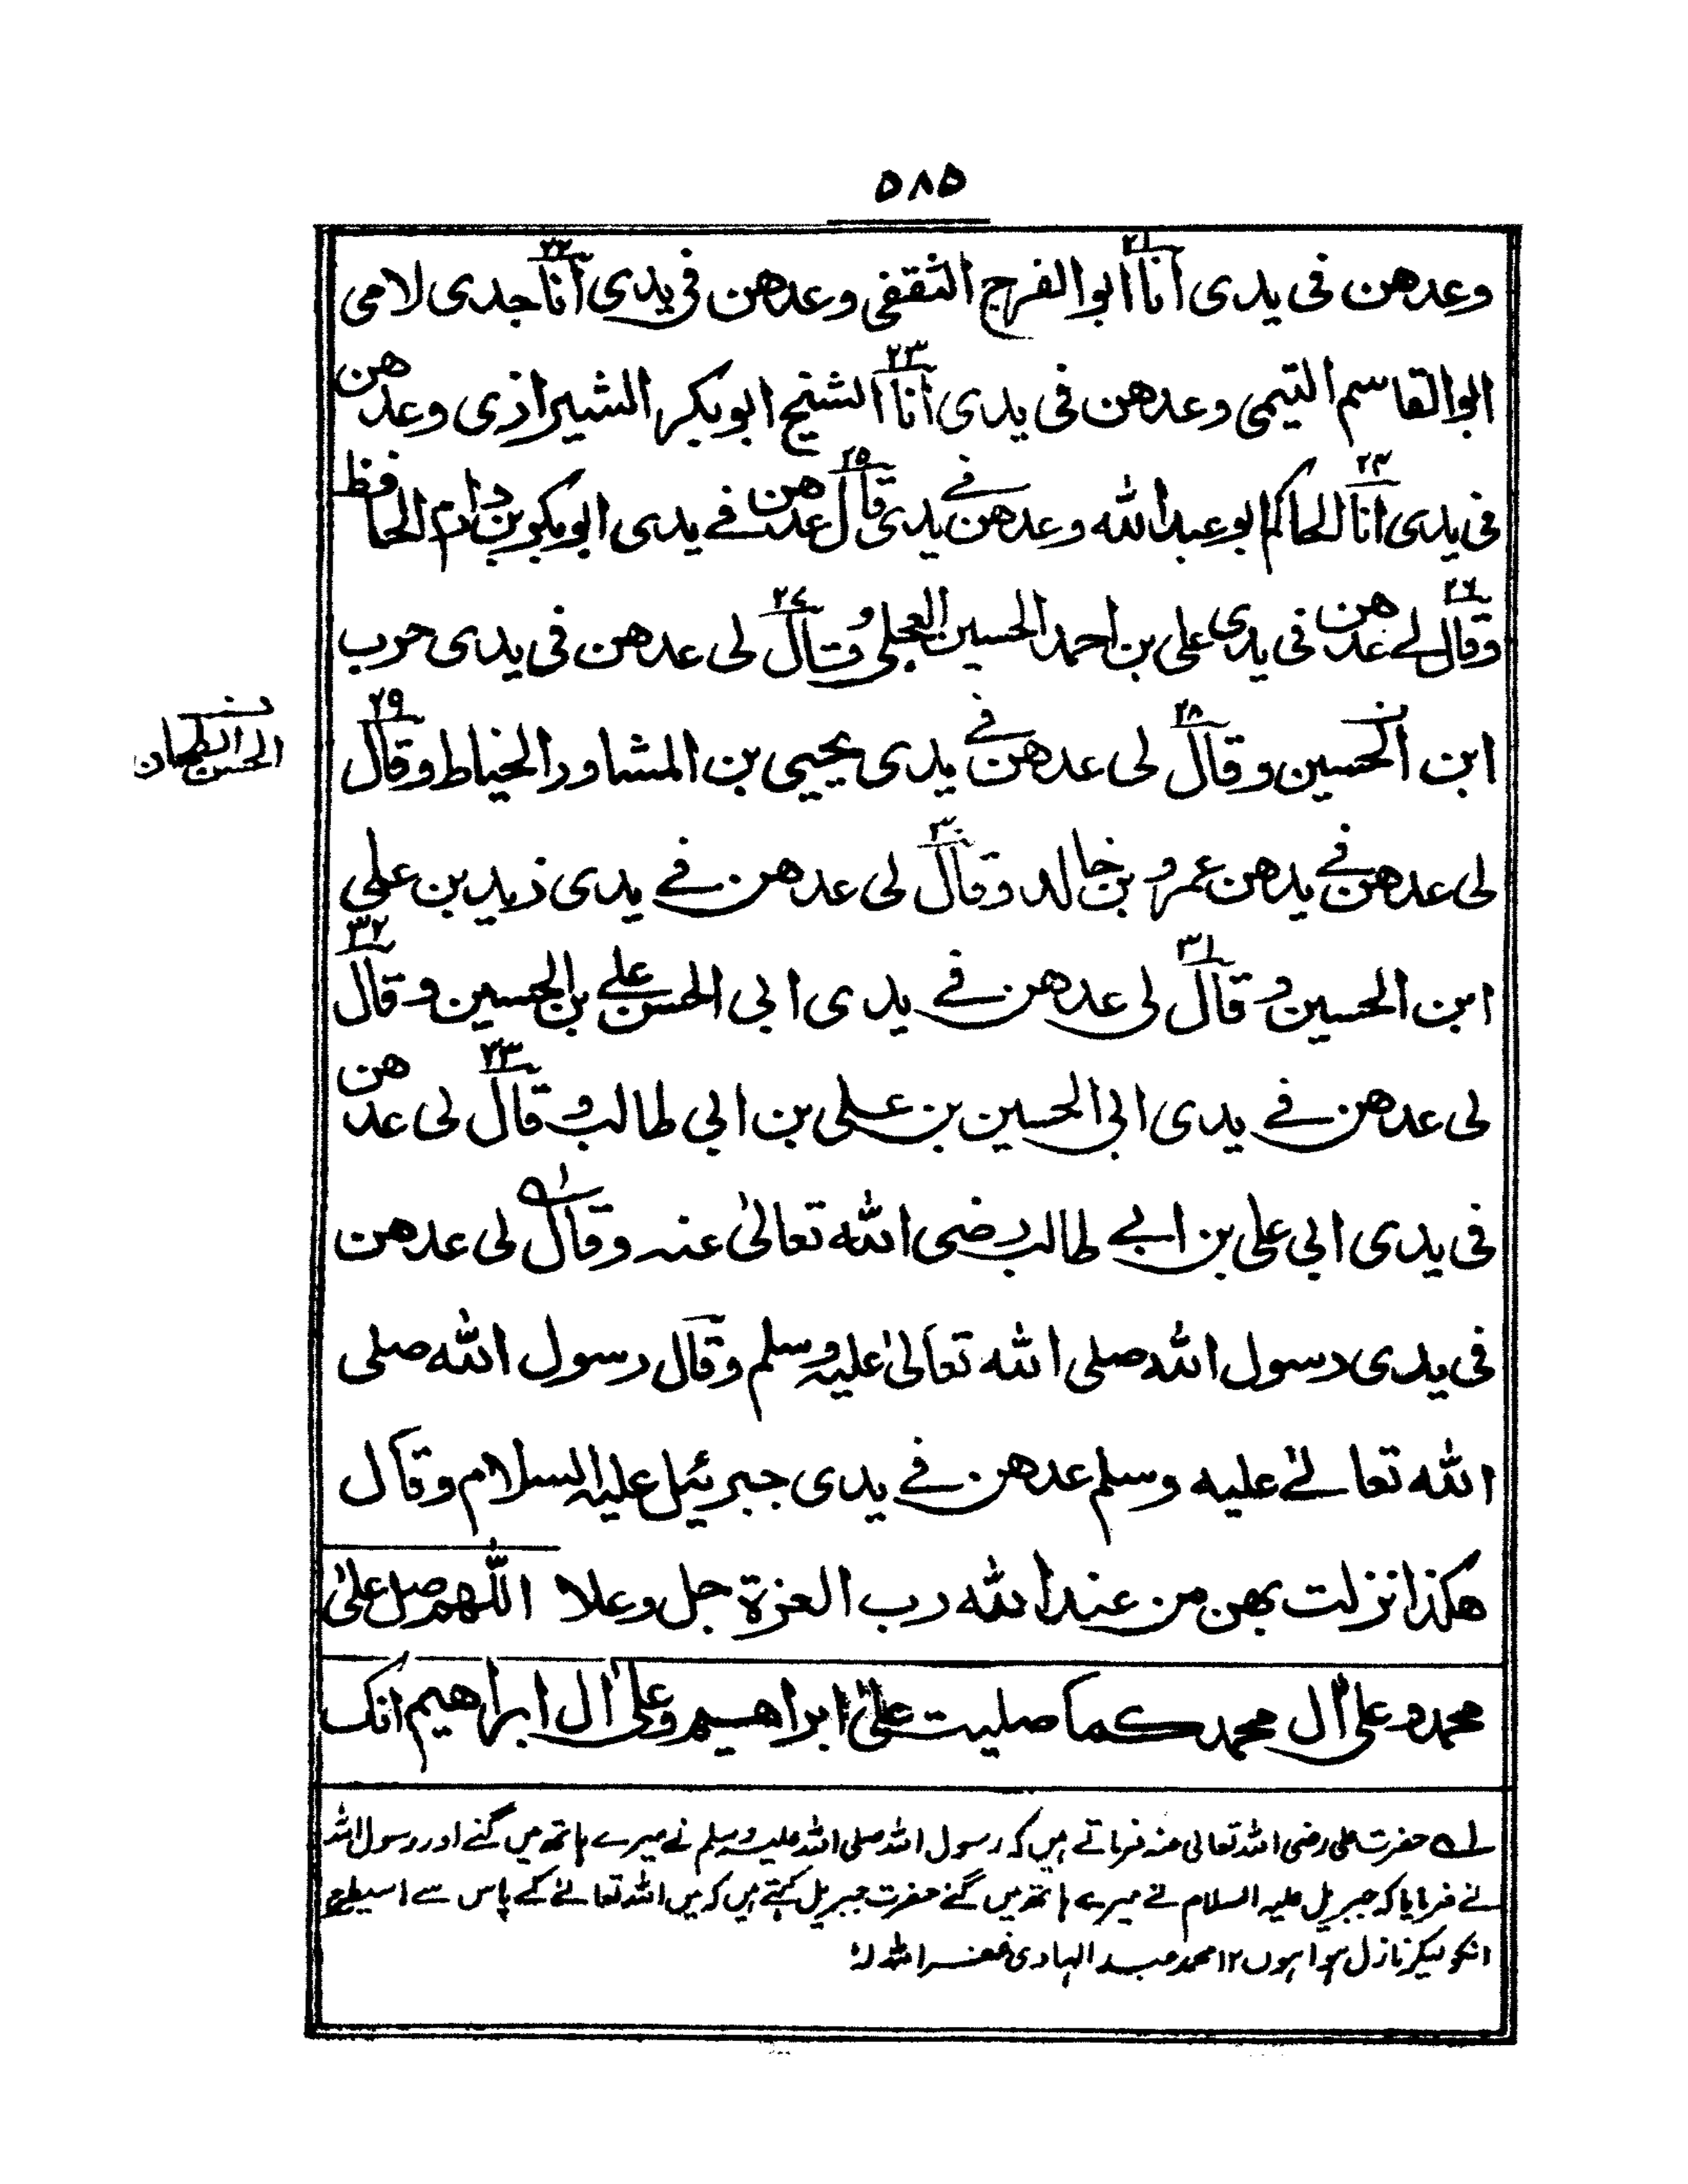 ۵۸۵
وعدهن فی یدی انا ابو الفرج الثقفی وعدهن فی یدی انا جدی لامی
ابو القاسم التیمی وعدهن فی یدی انا الشیخ ابو بکر الشیرازی وعدهن
فی یدی انا الحاکم ابو عبد الله وعدهن فی یدی قال عدهن فے یدی ابو بکر بن دارم الحافظ
وقال لے عدهن فی یدی علی بن احمد الحسین العجلی وقال لی عدهن فی یدی حرب
ابن الحسین وقال لی عدهن فے یدی یحیی بن المشاور الخیاط وقال
الحسن الطحان
لی عدهن فے یدهن عمرو بن خالد وقال لی عدهن فے یدی زید بن علی
ابن الحسین وقال لی عدهن فے یدی ابی الحسن علے بن الحسین وقال
لی عدهن فے یدی ابی الحسین بن علی بن ابی طالب وقال لی عدهن
فی یدی ابی علی بن ابے طالب رضی الله تعالیٰ عنہ وقال لی عدهن
فی یدی رسول الله صلی الله تعالیٰ علیہ وسلم وقال رسول الله صلی
الله تعالےٰ علیه وسلم عدهن فے یدی جبرئیل علیہ السلام وقال
هکذا نزلت بهن من عند الله رب العزة جل وعلا اللّٰهم صل علیٰ
محمد وعلی اٰل محمد کما صلیت علیٰ ابراهیم وعلیٰ اٰل ابراهیم انک
لے حضرت علی رضی اللہ تعالی عنہ فرماتے ہیں کہ رسول اللہ صلی اللہ علیہ وسلم نے میرے ہاتھ میں گنے اور رسول اللہ
نے فرمایا کہ جبریل علیہ السلام نے میرے ہاتھ میں گنے حضرت جبریل کہتے ہیں کہ میں اللہ تعالےٰ کے پاس سے اسیطرح
انکو لیکر نازل ہوا ہوں ۱۲ محمد عبد الہادی غفر اللہ لہٗ